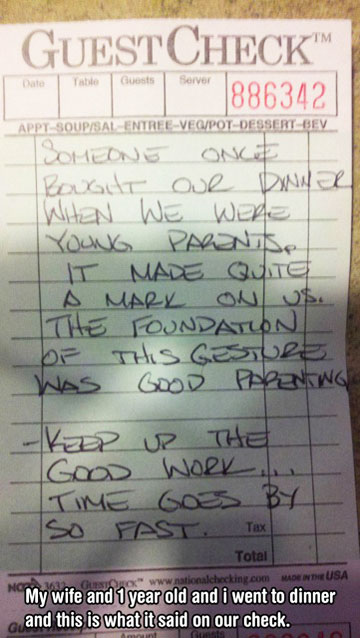 GUESTCHECK™
Date Table Guests Server
886342
APPT-SOUP/SAL-ENTREE-VEG/POT-DESSERT-BEV
SOMEONE ONCE
BOUGHT OUR DINNER
WHEN WE WERE
YOUNG PARENTS.
IT MADE QUITE
A MARK ON US.
THE FOUNDATION
OF THIS GESTURE
WAS GOOD PARENTING
-KEEP UP THE
GOOD WORK...
TIME GOES BY
SO FAST. Tax
Total
3632 GUESTCHECK™ www.nationalchecking.com MADE IN THE USA
My wife and 1 year old and i went to dinner
and this is what it said on our check.
Amount Guests